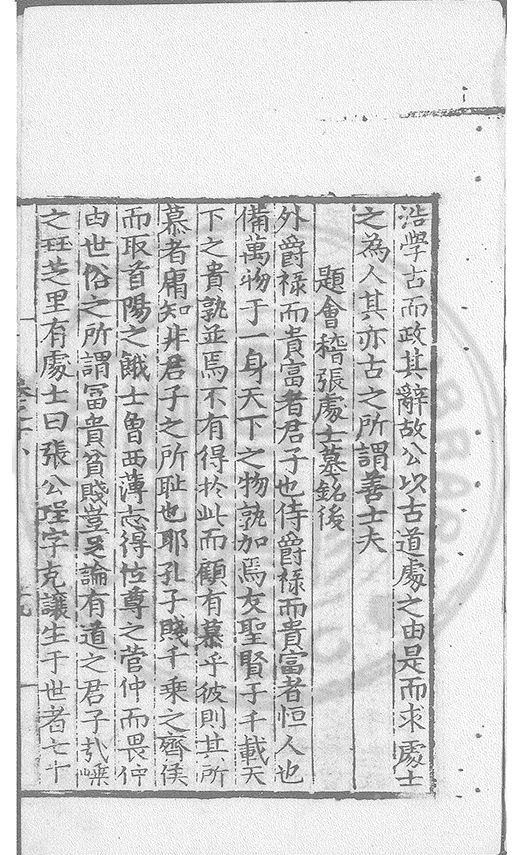 浩學古而政其辭故公以古道處之由是而求處士
之為人其亦古之所謂善士夫
題會稽張處士墓銘後
外爵祿而貴富者君子也侍爵祿而貴富者恒人也
備萬物于一身天下之物孰加焉友聖賢于千載天
下之貴孰並焉不有得於此而顧有慕乎彼則其所
慕者庸知非君子之所耻也耶孔子賤千乘之齊侯
而取首陽之餓士魯西薄志得位尊之管仲而畏仲
由世俗之所謂冨貴貧賤豈足論有道之君子哉嵊
之珏芝里有處士曰張公珵字克讓生于世者七十